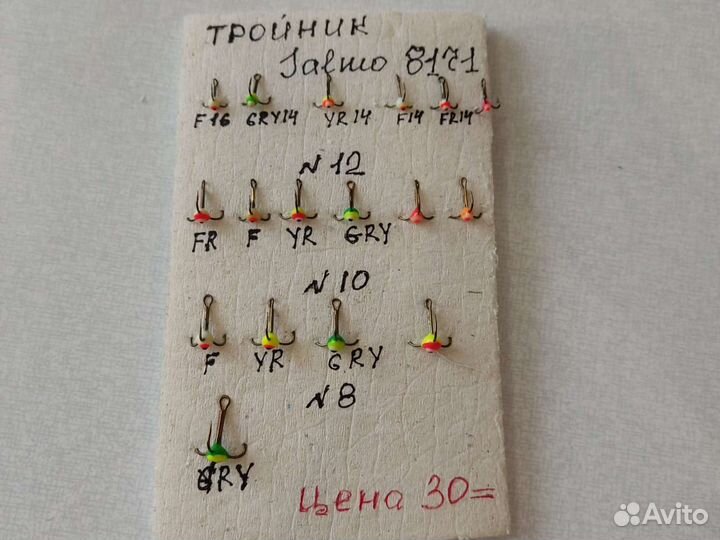 ТРОЙНИК
Salmo 8171
F16 GRY14 YR14 F14 FR14
N12
FR F YR GRY
N10
F YR GRY
N8
GRY
Цена 30=
Avito